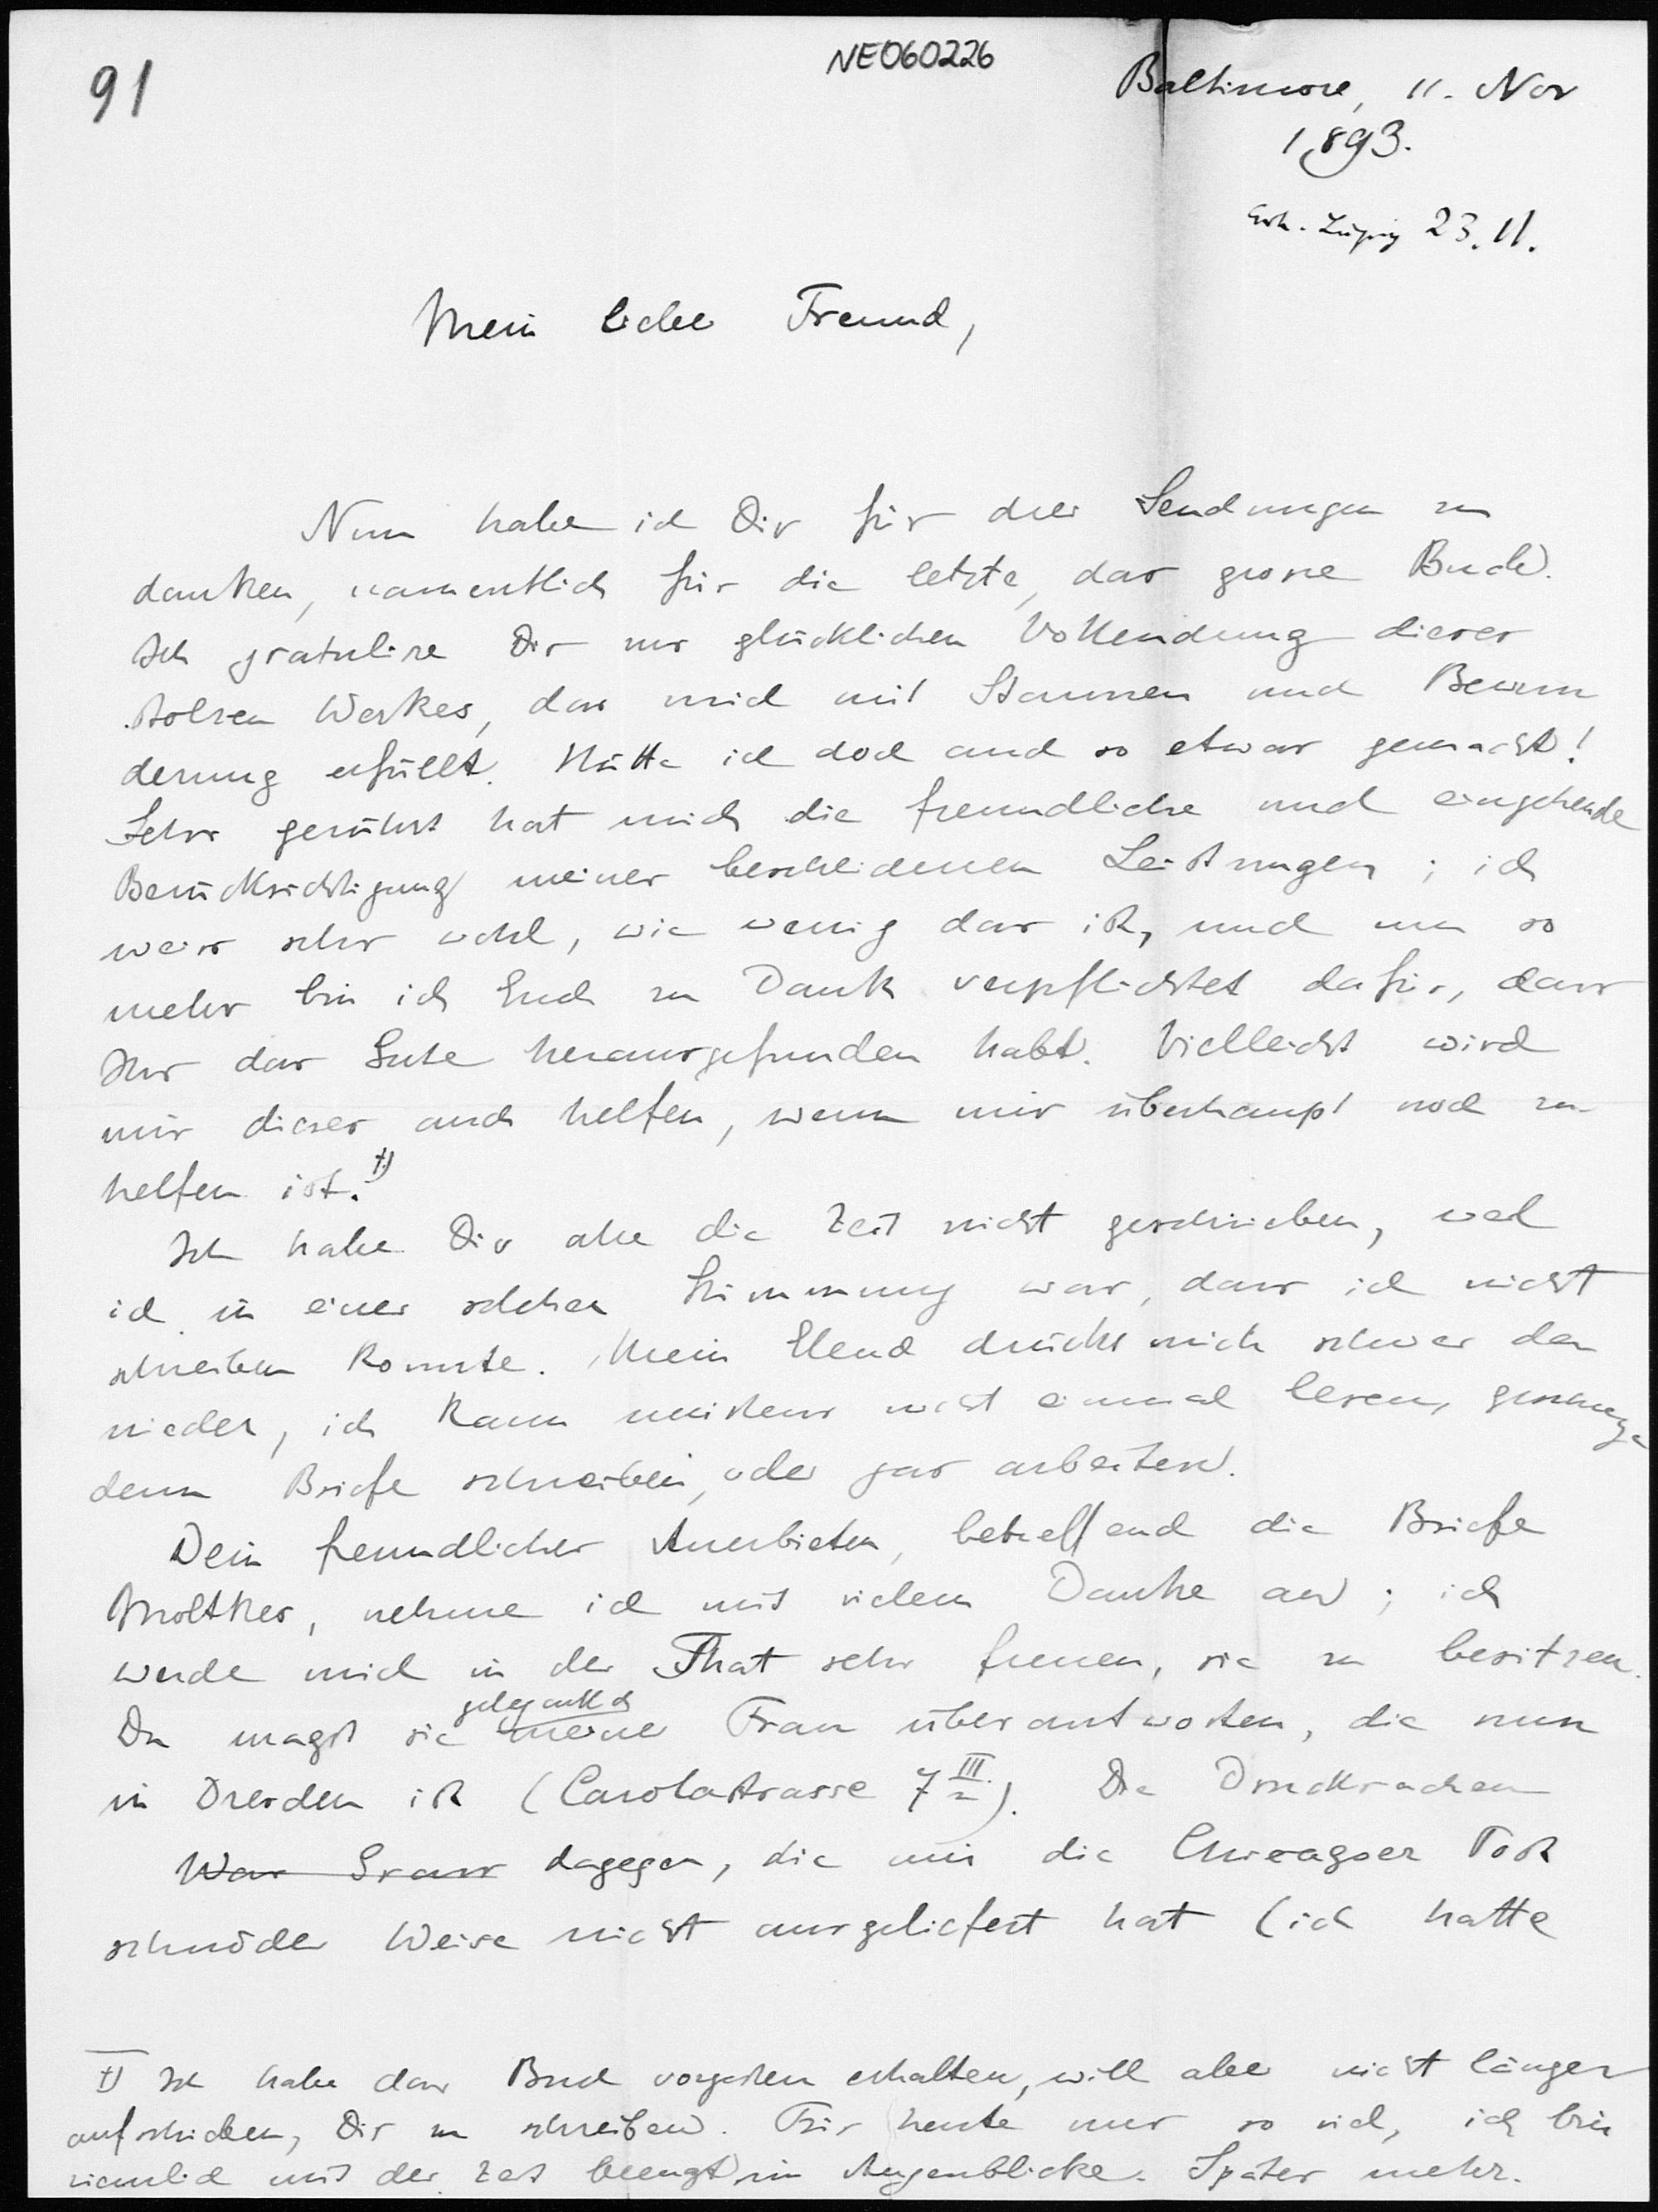 NE060226
91
Baltimore, 11. Nov
1893.
Erh. Leipzig 23.11.
Mein lieber Freund,
Nun habe ich Dir für drei Sendungen zu
danken, namentlich für die letzte, das grosse Buch.
Ich gratulire Dir zur glücklichen Vollendung dieses
stolzen Werkes, das mich mit Staunen und Bewun
derung erfüllt. Hätte ich doch auch so etwas gemacht!
Sehr gerührt hat mich die freundliche und eingehende
Berücksichtigung meiner bescheidenen Leistungen; ich
weiss sehr wohl, wie wenig das ist, und um so
mehr bin ich Euch zu Dank verpflichtet dafür, dass
Ihr das Gute herausgefunden habt. Vielleicht wird
mir dieses auch helfen, wenn mir überhaupt noch zu
helfen ist. †)
Ich habe Dir alle die Zeit nicht geschrieben, weil
ich in einer solchen Stimmung war, dass ich nicht
schreiben konnte. Mein Elend drückt mich schwer dar
nieder, ich kann meistens nicht einmal lesen, geschweige
denn Briefe schreiben, oder gar arbeiten.
Dein freundliches Anerbieten, betreffend die Briefe
Moltkes, nehme ich mit vielem Danke an; ich
werde mich in der That sehr freuen, sie zu besitzen.
Du magst sie gelegentlich meine Frau überantworten, die nun
in Dresden ist (Carolastrasse 7 III). Die Drucksachen
War Grass dagegen, die mir die Chicagoer Post
schnöder Weise nicht ausgeliefert hat (ich hatte
†) Ich habe das Buch vorgestern erhalten, will aber nicht länger
aufschieben, Dir zu schreiben. Für heute nur so viel, ich bin
ziemlich mit der Zeit beengt im Augenblicke. Später mehr.